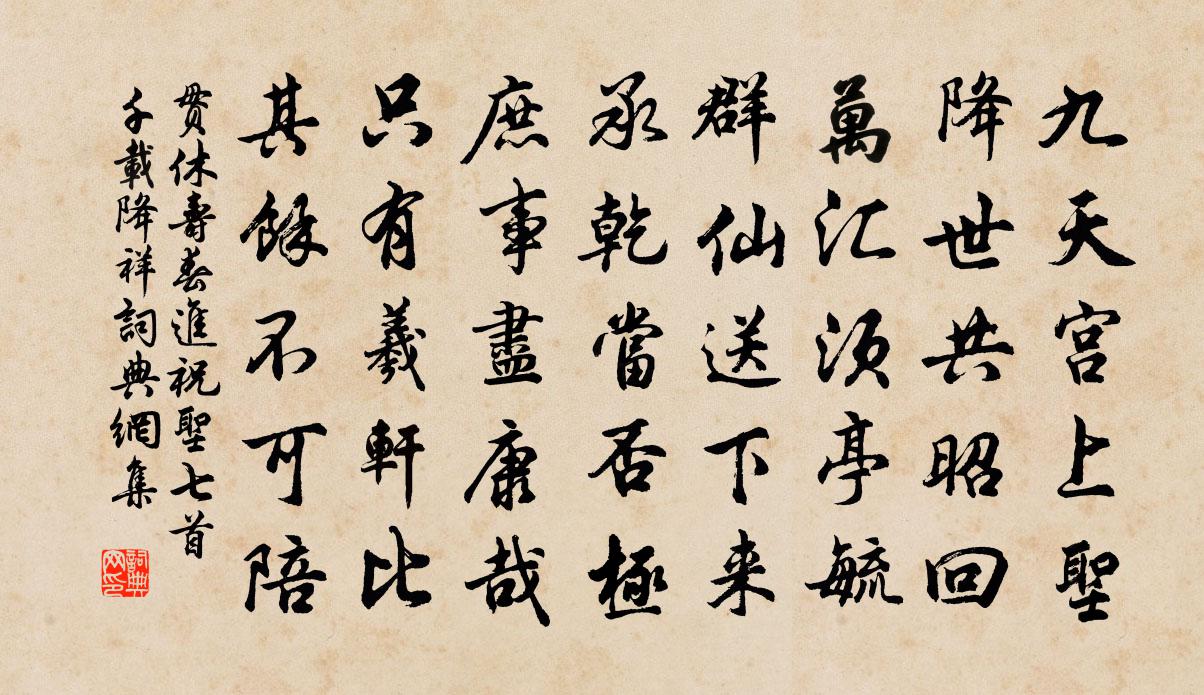 九天宮上聖
降世共昭回
萬汇須亭毓
群仙送下来
承乾當否極
庶事盡康哉
只有羲軒比
其餘不可陪
貫休壽春進祝聖七首
千載降祥詞典網集
詞典网印